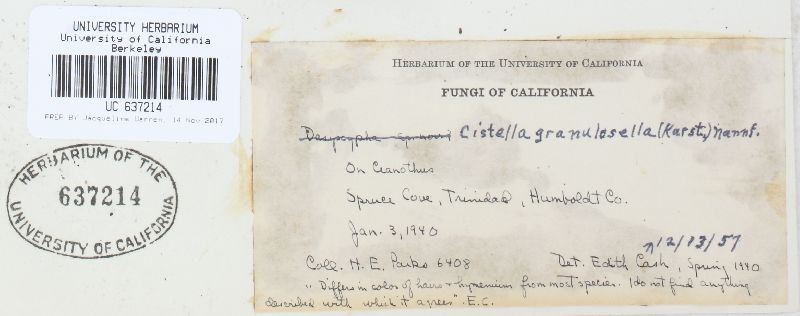 UNIVERSITY HERBARIUM
University of California
Berkeley
UC 637214
PREP BY Jacqueline Warren, 14 Nov 2017
HERBARIUM OF THE
637214
UNIVERSITY OF CALIFORNIA
HERBARIUM OF THE UNIVERSITY OF CALIFORNIA
FUNGI OF CALIFORNIA
Dasyscypha Cistella granulosella (Karst.) Nannf.
On Ceanothus
Spruce Cove, Trinidad, Humboldt Co.
Jan. 3, 1940
12/13/57
Coll. H. E. Parks 6408 Det. Edith Cash, Spring 1940
"Differs in color of hairs & hymenium from most species. I do not find anything
described with which it agrees". E.C.